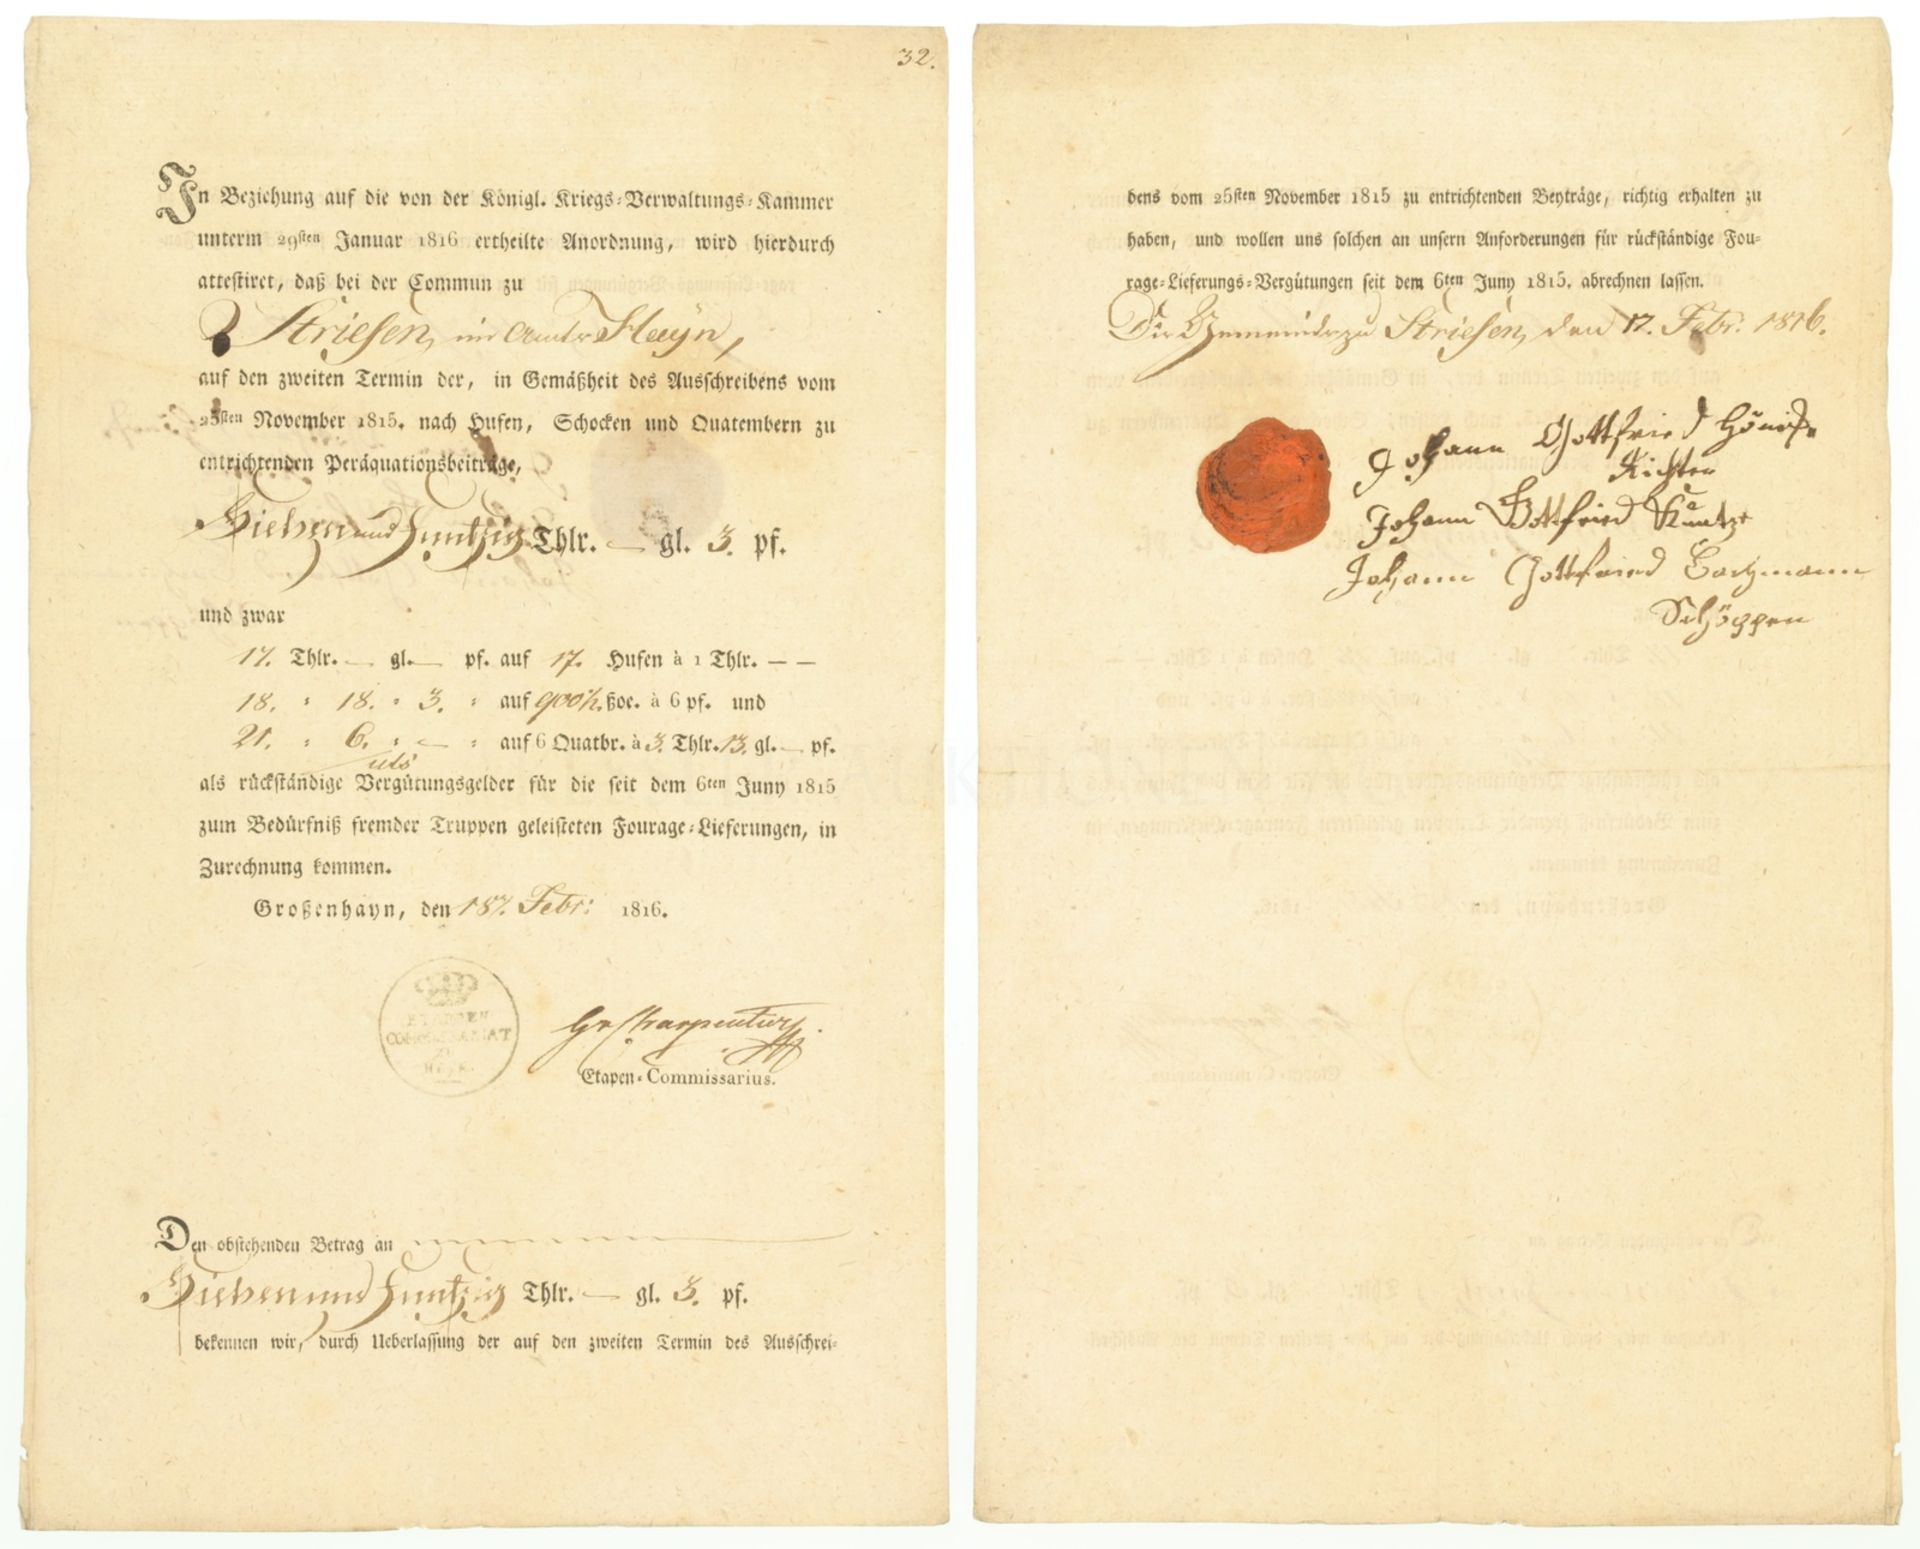 32.
In Beziehung auf die von der Königl. Kriegs-Verwaltungs-Kammer
unterm 29sten Januar 1816 ertheilte Anordnung, wird hierdurch
attestiret, daß bei der Commun zu
Striesen, im Amte Hayn,
auf den zweiten Termin der, in Gemäßheit des Ausschreibens vom
25sten November 1815. nach Hufen, Schocken und Quatembern zu
entrichtenden Peräquationsbeiträge,
Sieben und funfzig Thlr. — gl. 3. pf.
und zwar
17. Thlr. — gl. — pf. auf 17. Hufen à 1 Thlr. — —
18. " 18. " 3. " auf 900½ ßoc. à 6 pf. und
21. " 6. " — " auf 6 Quatbr. à 3. Thlr. 13. gl. — pf.
uts
als rückständige Vergütungsgelder für die seit dem 6ten Juny 1815
zum Bedürfniß fremder Truppen geleisteten Fourage-Lieferungen, in
Zurechnung kommen.
Großenhayn, den 18t. Febr: 1816.
ETAPPEN
COMMISSARIAT
HAYN.
Charpentier
Etapen-Commissarius.
Den obstehenden Betrag an
Sieben und funfzig Thlr. — gl. 3. pf.
bekennen wir, durch Ueberlassung der auf den zweiten Termin des Ausschrei-
dens vom 25sten November 1815 zu entrichtenden Beyträge, richtig erhalten zu
haben, und wollen uns solchen an unsern Anforderungen für rückständige Fou-
rage-Lieferungs-Vergütungen seit dem 6ten Juny 1815. abrechnen lassen.
Die Gemeinde zu Striesen, den 17. Febr. 1816.
Johann Gottfried
Richter
Johann Gottfried Kuntze
Johann Gottfried Bachmann
Schöppen